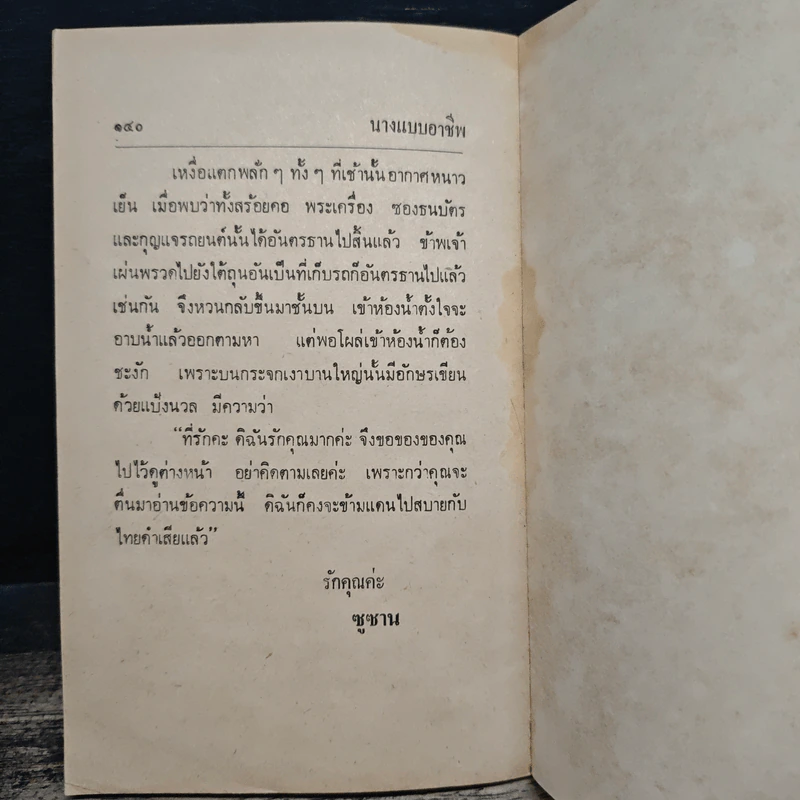 ๑๔๐ นางแบบอาชีพ
เหงื่อแตกพลั่ก ๆ ทั้ง ๆ ที่เช้านั้นอากาศหนาว
เย็น เมื่อพบว่าทั้งสร้อยคอ พระเครื่อง ซองธนบัตร
และกุญแจรถยนต์นั้นได้อันตรธานไปสิ้นแล้ว ข้าพเจ้า
เผ่นพรวดไปยังใต้ถุนอันเป็นที่เก็บรถก็อันตรธานไปแล้ว
เช่นกัน จึงหวนกลับขึ้นมาชั้นบน เข้าห้องน้ำตั้งใจจะ
อาบน้ำแล้วออกตามหา แต่พอโผล่เข้าห้องน้ำก็ต้อง
ชะงัก เพราะบนกระจกเงาบานใหญ่นั้นมีอักษรเขียน
ด้วยแป้งนวล มีความว่า
“ที่รักคะ ดิฉันรักคุณมากค่ะ จึงขอของของคุณ
ไปไว้ดูต่างหน้า อย่าคิดตามเลยค่ะ เพราะกว่าคุณจะ
ตื่นมาอ่านข้อความนี้ ดิฉันก็คงจะข้ามแดนไปสบายกับ
ไทยดำเสียแล้ว”
รักคุณค่ะ
ซูซาน